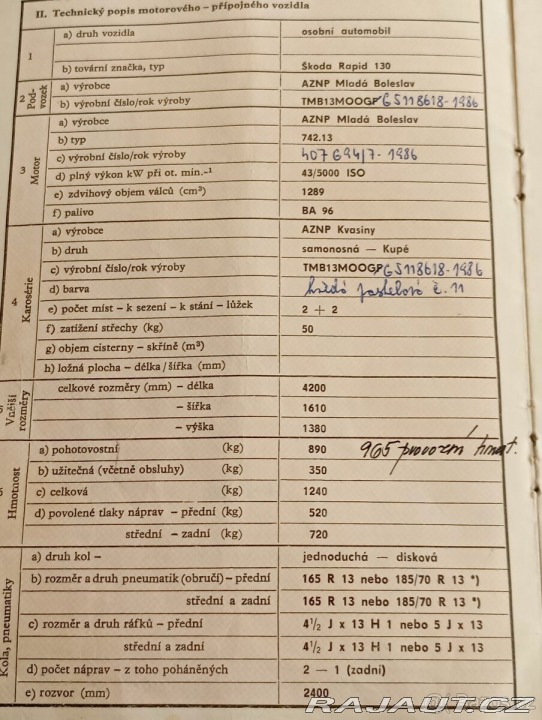 II. Technický popis motorového – přípojného vozidla
1
a) druh vozidla osobní automobil
b) tovární značka, typ Škoda Rapid 130
2 Pod- vozek
a) výrobce AZNP Mladá Boleslav
b) výrobní číslo/rok výroby TMB13MOOGP G5118618-1986
3 Motor
a) výrobce AZNP Mladá Boleslav
b) typ 742.13
c) výrobní číslo/rok výroby 407694/7-1986
d) plný výkon kW při ot. min.-1 43/5000 ISO
e) zdvihový objem válců (cm³) 1289
f) palivo BA 96
4 Karosérie
a) výrobce AZNP Kvasiny
b) druh samonosná — Kupé
c) výrobní číslo/rok výroby TMB13MOOGP G5118618-1986
d) barva hnědá pastelová č. 11
e) počet míst – k sezení – k stání – lůžek 2 + 2
f) zatížení střechy (kg) 50
g) objem cisterny – skříně (m³)
h) ložná plocha – délka/šířka (mm)
Vnější rozměry
celkové rozměry (mm) – délka 4200
– šířka 1610
– výška 1380
Hmotnost
a) pohotovostní (kg) 890 965 provozní hmot.
b) užitečná (včetně obsluhy) (kg) 350
c) celková (kg) 1240
d) povolené tlaky náprav – přední (kg) 520
střední – zadní (kg) 720
Kola, pneumatiky
a) druh kol – jednoduchá — disková
b) rozměr a druh pneumatik (obručí) – přední 165 R 13 nebo 185/70 R 13 *)
střední a zadní 165 R 13 nebo 185/70 R 13 *)
c) rozměr a druh ráfků – přední 4½ J x 13 H 1 nebo 5 J x 13
střední a zadní 4½ J x 13 H 1 nebo 5 J x 13
d) počet náprav – z toho poháněných 2 — 1 (zadní)
e) rozvor (mm) 2400
RAJAUT.CZ